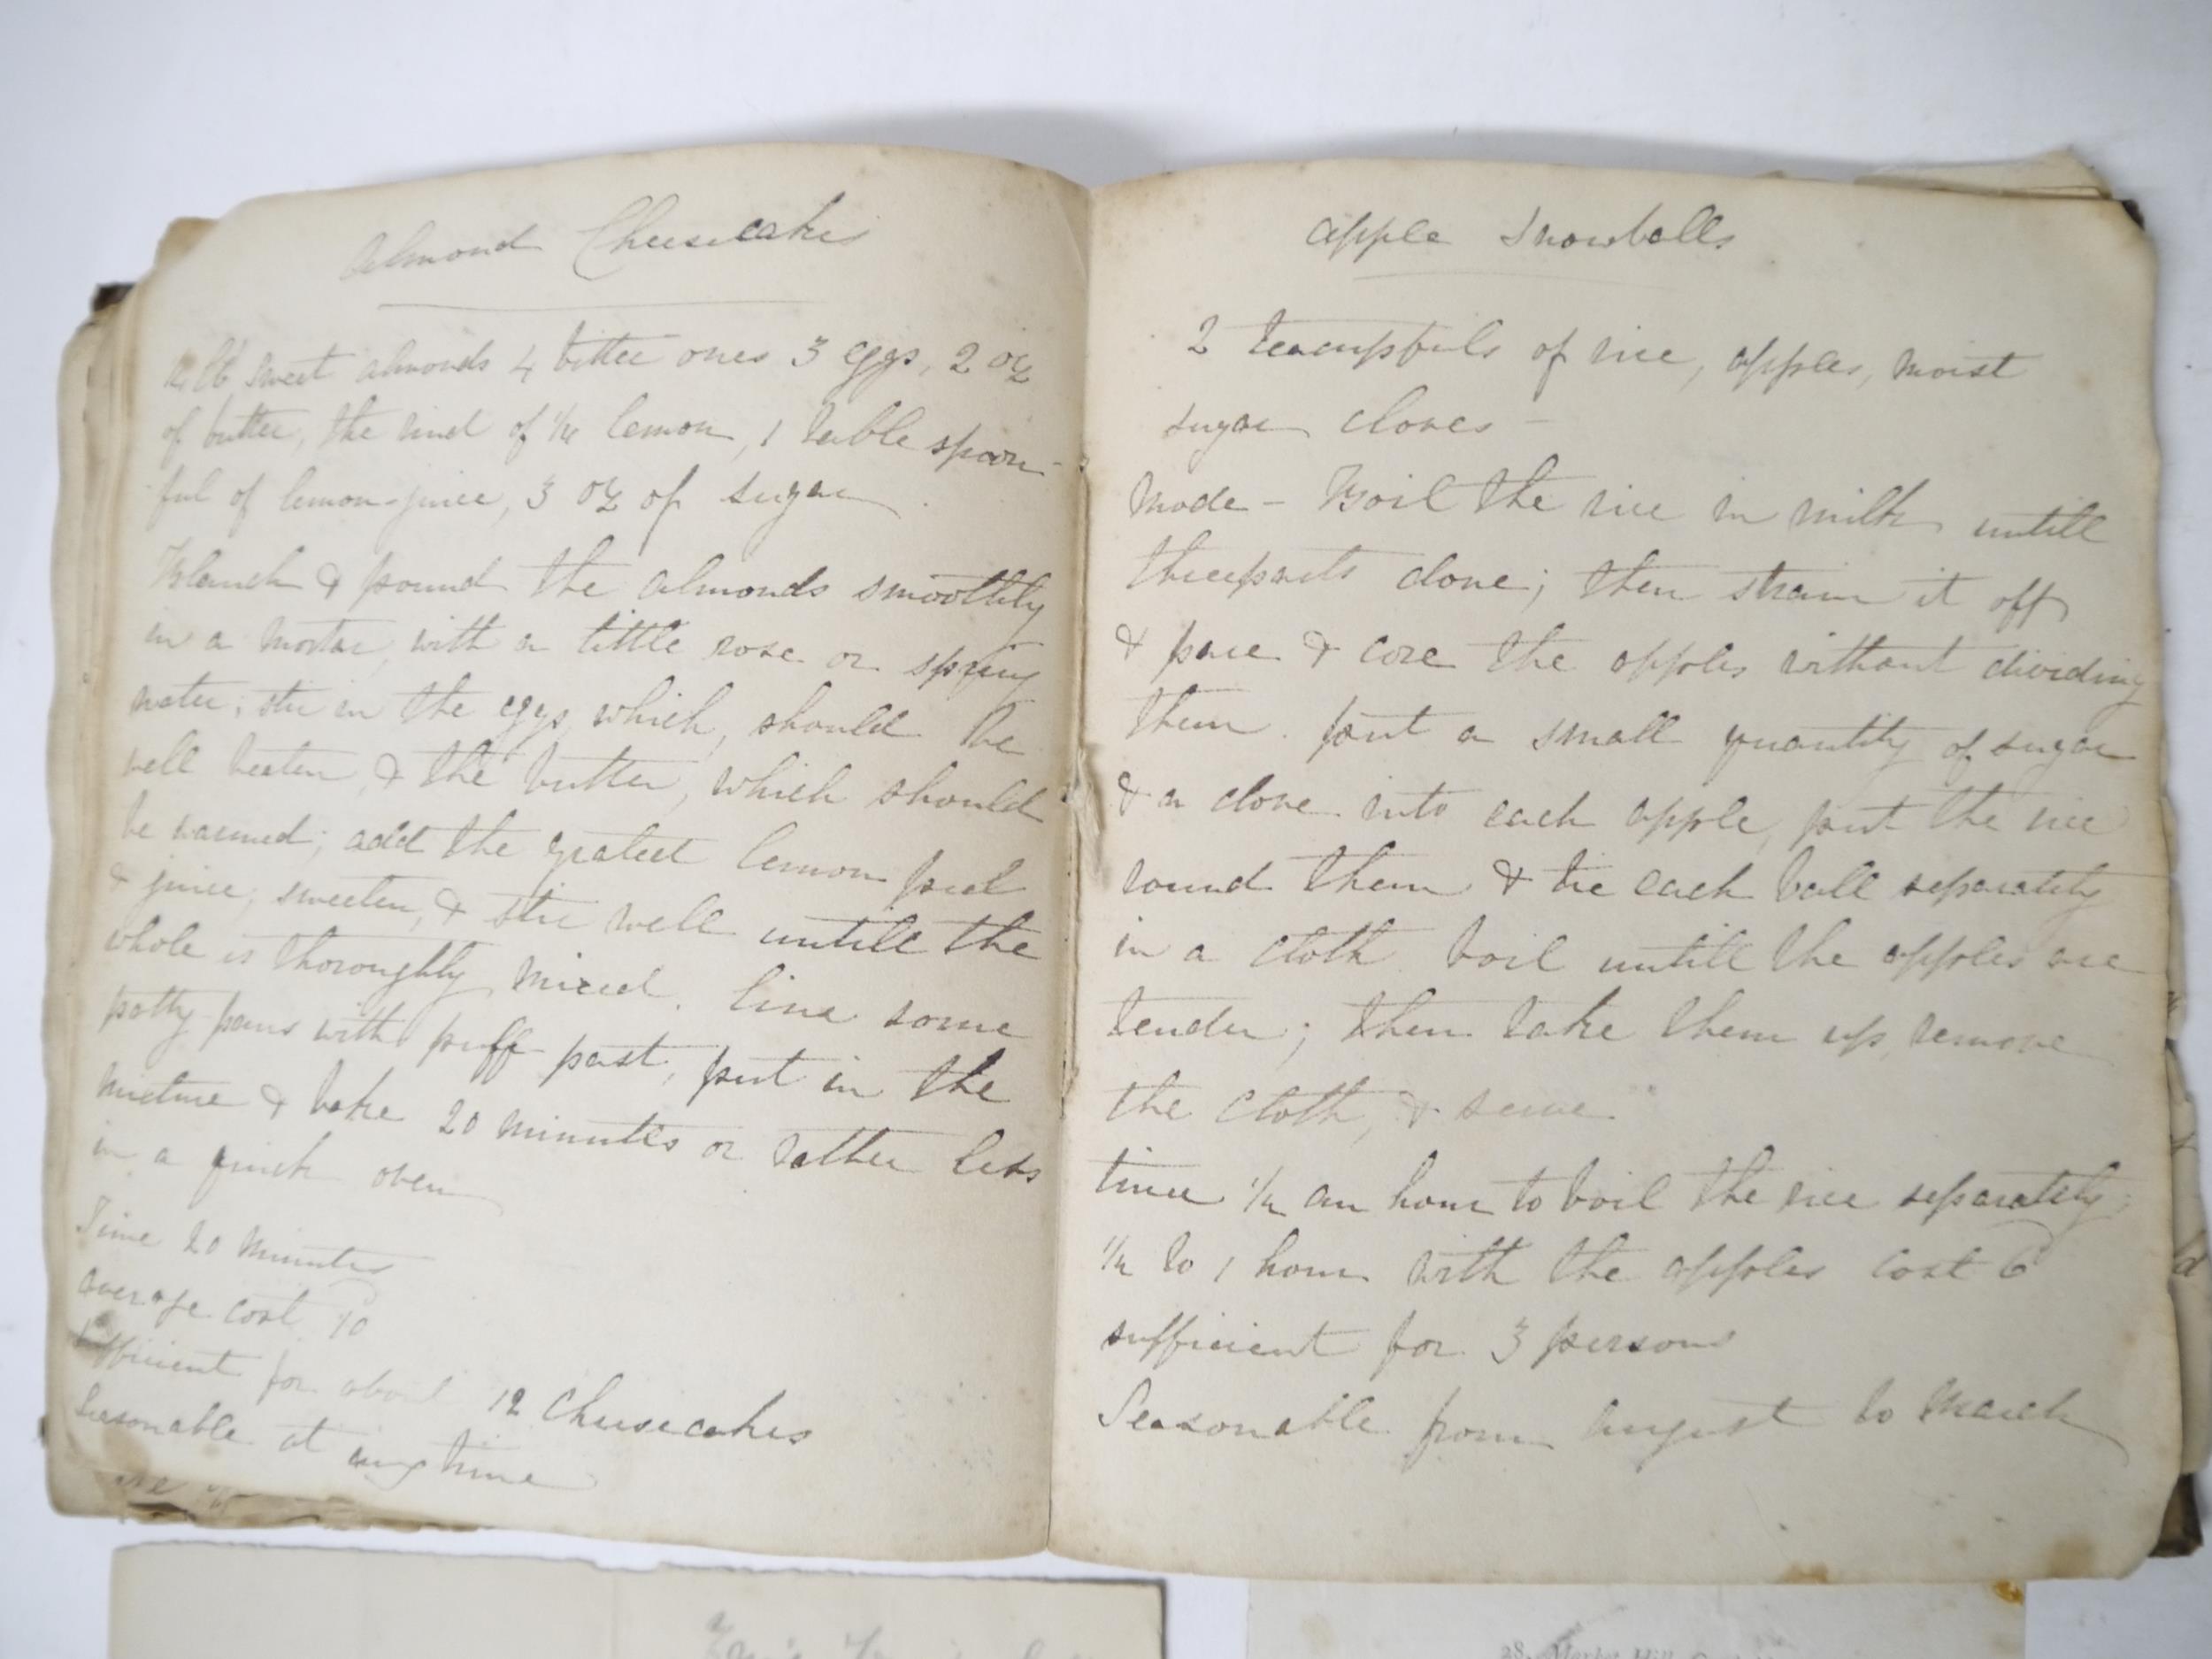 Almond Cheesecakes
1/4 lb sweet almonds 4 bitter ones 3 eggs, 2 oz
of butter, the rind of 1/4 lemon, 1 table spoon-
ful of lemon-juice, 3 oz of sugar.
Blanch & pound the almonds smoothly
in a mortar, with a little rose or spring
water; stir in the eggs, which, should be
well beaten, & the butter, which should
be warmed; add the grated lemon peel
& juice; sweeten, & stir well untill the
whole is thoroughly mixed. line some
patty pans with puff past, put in the
mixture & bake 20 minutes or rather less
in a quick oven
Time 20 minutes
average cost 10
Sufficient for about 12 Cheesecakes
Seasonable at any time
apple Snowballs
2 teacupfuls of rice, apples, moist
sugar cloves -
Mode - Boil the rice in milk untill
threeparts done; then strain it off
& pare & core the apples without dividing
them. put a small quantity of sugar
& a clove into each apple, put the rice
round them & tie each ball separately
in a cloth. boil untill the apples are
tender; then take them up, remove
the cloth, & serve.
time 1/2 an hour to boil the rice separately;
1/2 to 1 hour with the apples cost 6d
sufficient for 3 persons
Seasonable from August to March